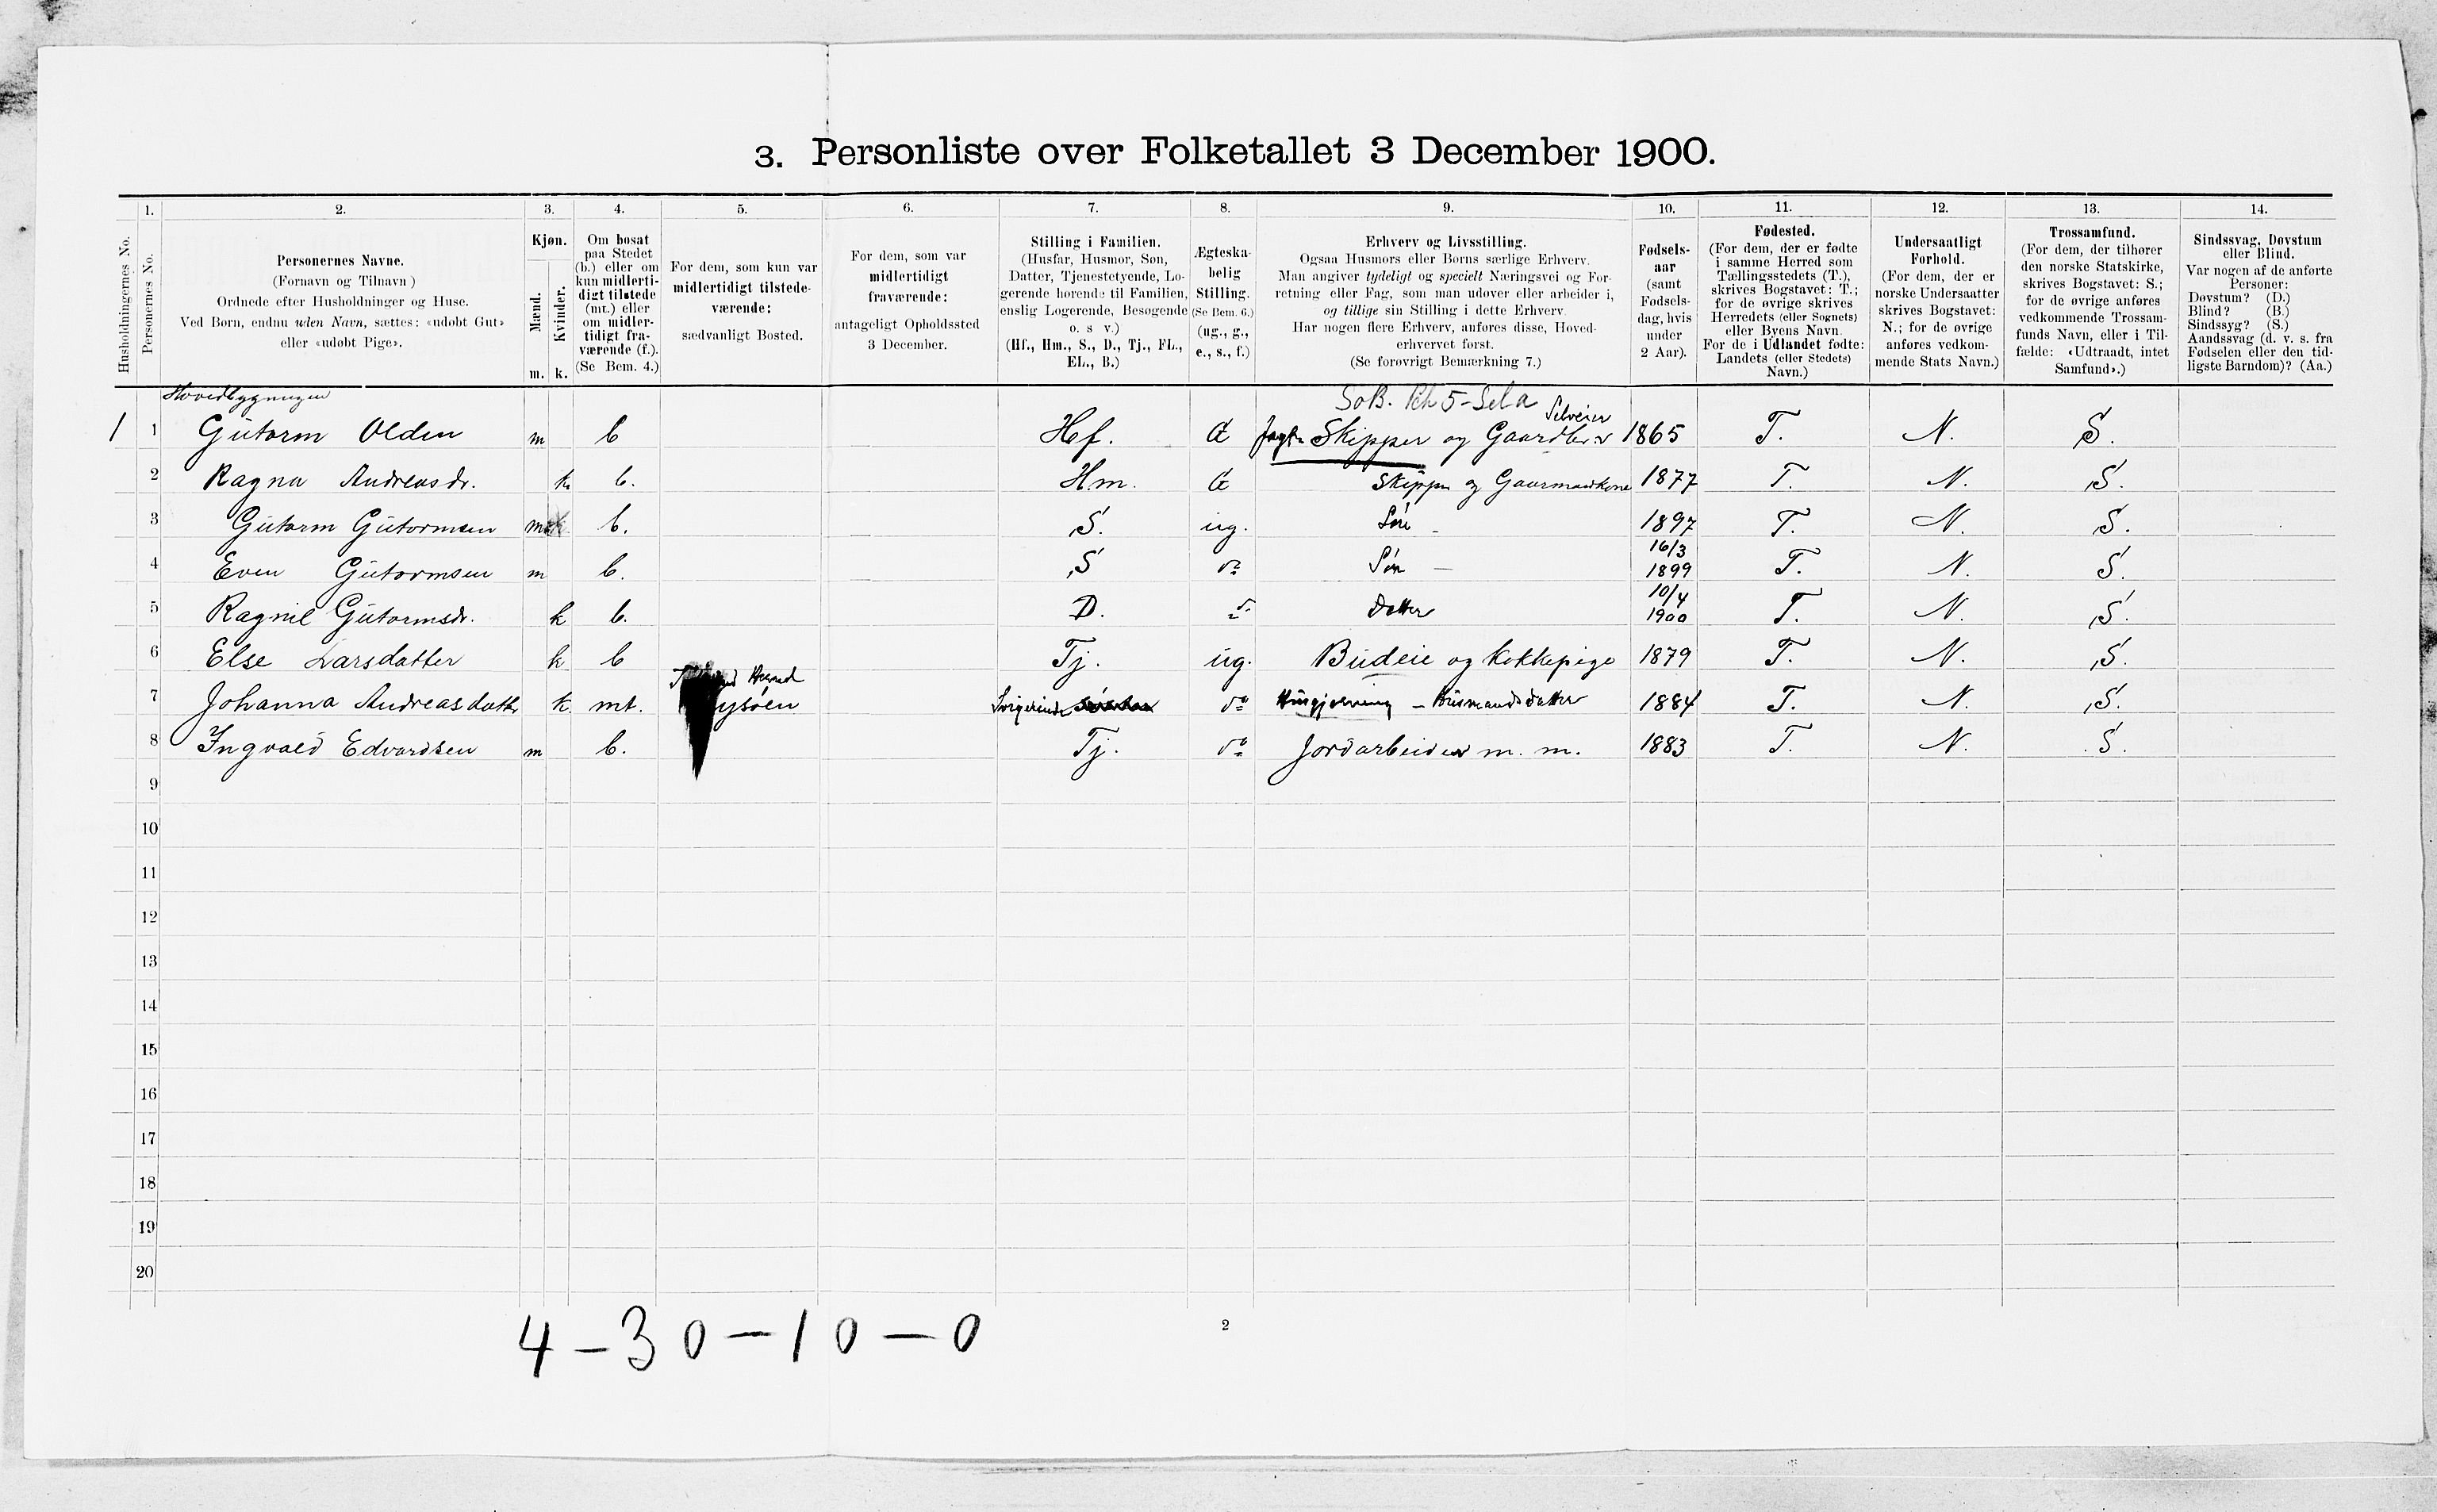 3. Personliste over Folketallet 3 December 1900.
1. 2. 3. 4. 5. 6. 7. 8. 9. 10. 11. 12. 13. 14.
Husholdningernes No.
Personernes No.
Personernes Navne.
(Fornavn og Tilnavn)
Ordnede efter Husholdninger og Huse.
Ved Børn, endnu uden Navn, sættes: «udøbt Gut»
eller «udøbt Pige».
Kjøn.
Mænd.
Kvinder.
m. k.
Om bosat
paa Stedet
(b.) eller om
kun midlerti-
digt tilstede
(mt.) eller
om midler-
tidigt fra-
værende (f.).
(Se Bem. 4.)
For dem, som kun var
midlertidigt tilstede-
værende:
sædvanligt Bosted.
For dem, som var
midlertidigt
fraværende:
antageligt Opholdssted
3 December.
Stilling i Familien.
(Husfar, Husmor, Søn,
Datter, Tjenestetyende, Lo-
gerende hørende til Familien,
enslig Logerende, Besøgende
o. s v.)
(Hf., Hm., S., D., Tj., FL.,
EL., B.)
Ægteska-
belig
Stilling.
(Se Bem. 6.)
(ug., g.,
e., s., f.)
Erhverv og Livsstilling.
Ogsaa Husmors eller Børns særlige Erhverv.
Man angiver tydeligt og specielt Næringsvei og For-
retning eller Fag, som man udøver eller arbeider i,
og tillige sin Stilling i dette Erhverv.
Har nogen flere Erhverv, anføres disse, Hoved-
erhvervet først.
(Se forøvrigt Bemærkning 7.)
Fødsels-
aar
(samt
Fødsels-
dag, hvis
under
2 Aar).
Fødested.
(For dem, der er fødte
i samme Herred som
Tællingsstedets (T.),
skrives Bogstavet: T.;
for de øvrige skrives
Herredets (eller Sognets)
eller Byens Navn.
For de i Udlandet fødte:
Landets (eller Stedets)
Navn.)
Undersaatligt
Forhold.
(For dem, der er
norske Undersaatter
skrives Bogstavet:
N.; for de øvrige
anføres vedkom-
mende Stats Navn.)
Trossamfund.
(For dem, der tilhører
den norske Statskirke,
skrives Bogstavet: S.;
for de øvrige anføres
vedkommende Trossam-
funds Navn, eller i Til-
fælde: «Udtraadt, intet
Samfund».)
Sindssvag, Døvstum
eller Blind.
Var nogen af de anførte
Personer:
Døvstum? (D.)
Blind? (B.)
Sindssyg? (S.)
Aandssvag (d. v. s. fra
Fødselen eller den tid-
ligste Barndom)? (Aa.)
Hovedbygningen
Selveier
1 1 Gutorm Olden m b Hf. G Skipper og Gaardbr 1865 T. N. S.
2 Ragna Andreasdr. k. b. Hm. G Skipper og Gaarmandkone 1877 T. N. S.
3 Gutorm Gutormsen m b. S. ug. Søn - 1897 T. N. S.
4 Even Gutormsen m b. S do Søn - 16/3 1899 T. N. S.
5 Ragnil Gutormsdr. k b. D. do Datter 10/4 1900 T. N. S.
6 Else Larsdatter k b Tj. ug. Budeie og Kokkepige 1879 T. N. S.
7 Johanna Andreasdatter k. mt. do Husgjerning - Husmandsdatter 1884 T. N. S.
8 Ingvald Edvardsen m b. Tj. do Jordarbeider m. m. 1883 T. N. S.
9
10
11
12
13
14
15
16
17
18
19
20
4 - 30 - 10 - 0
2